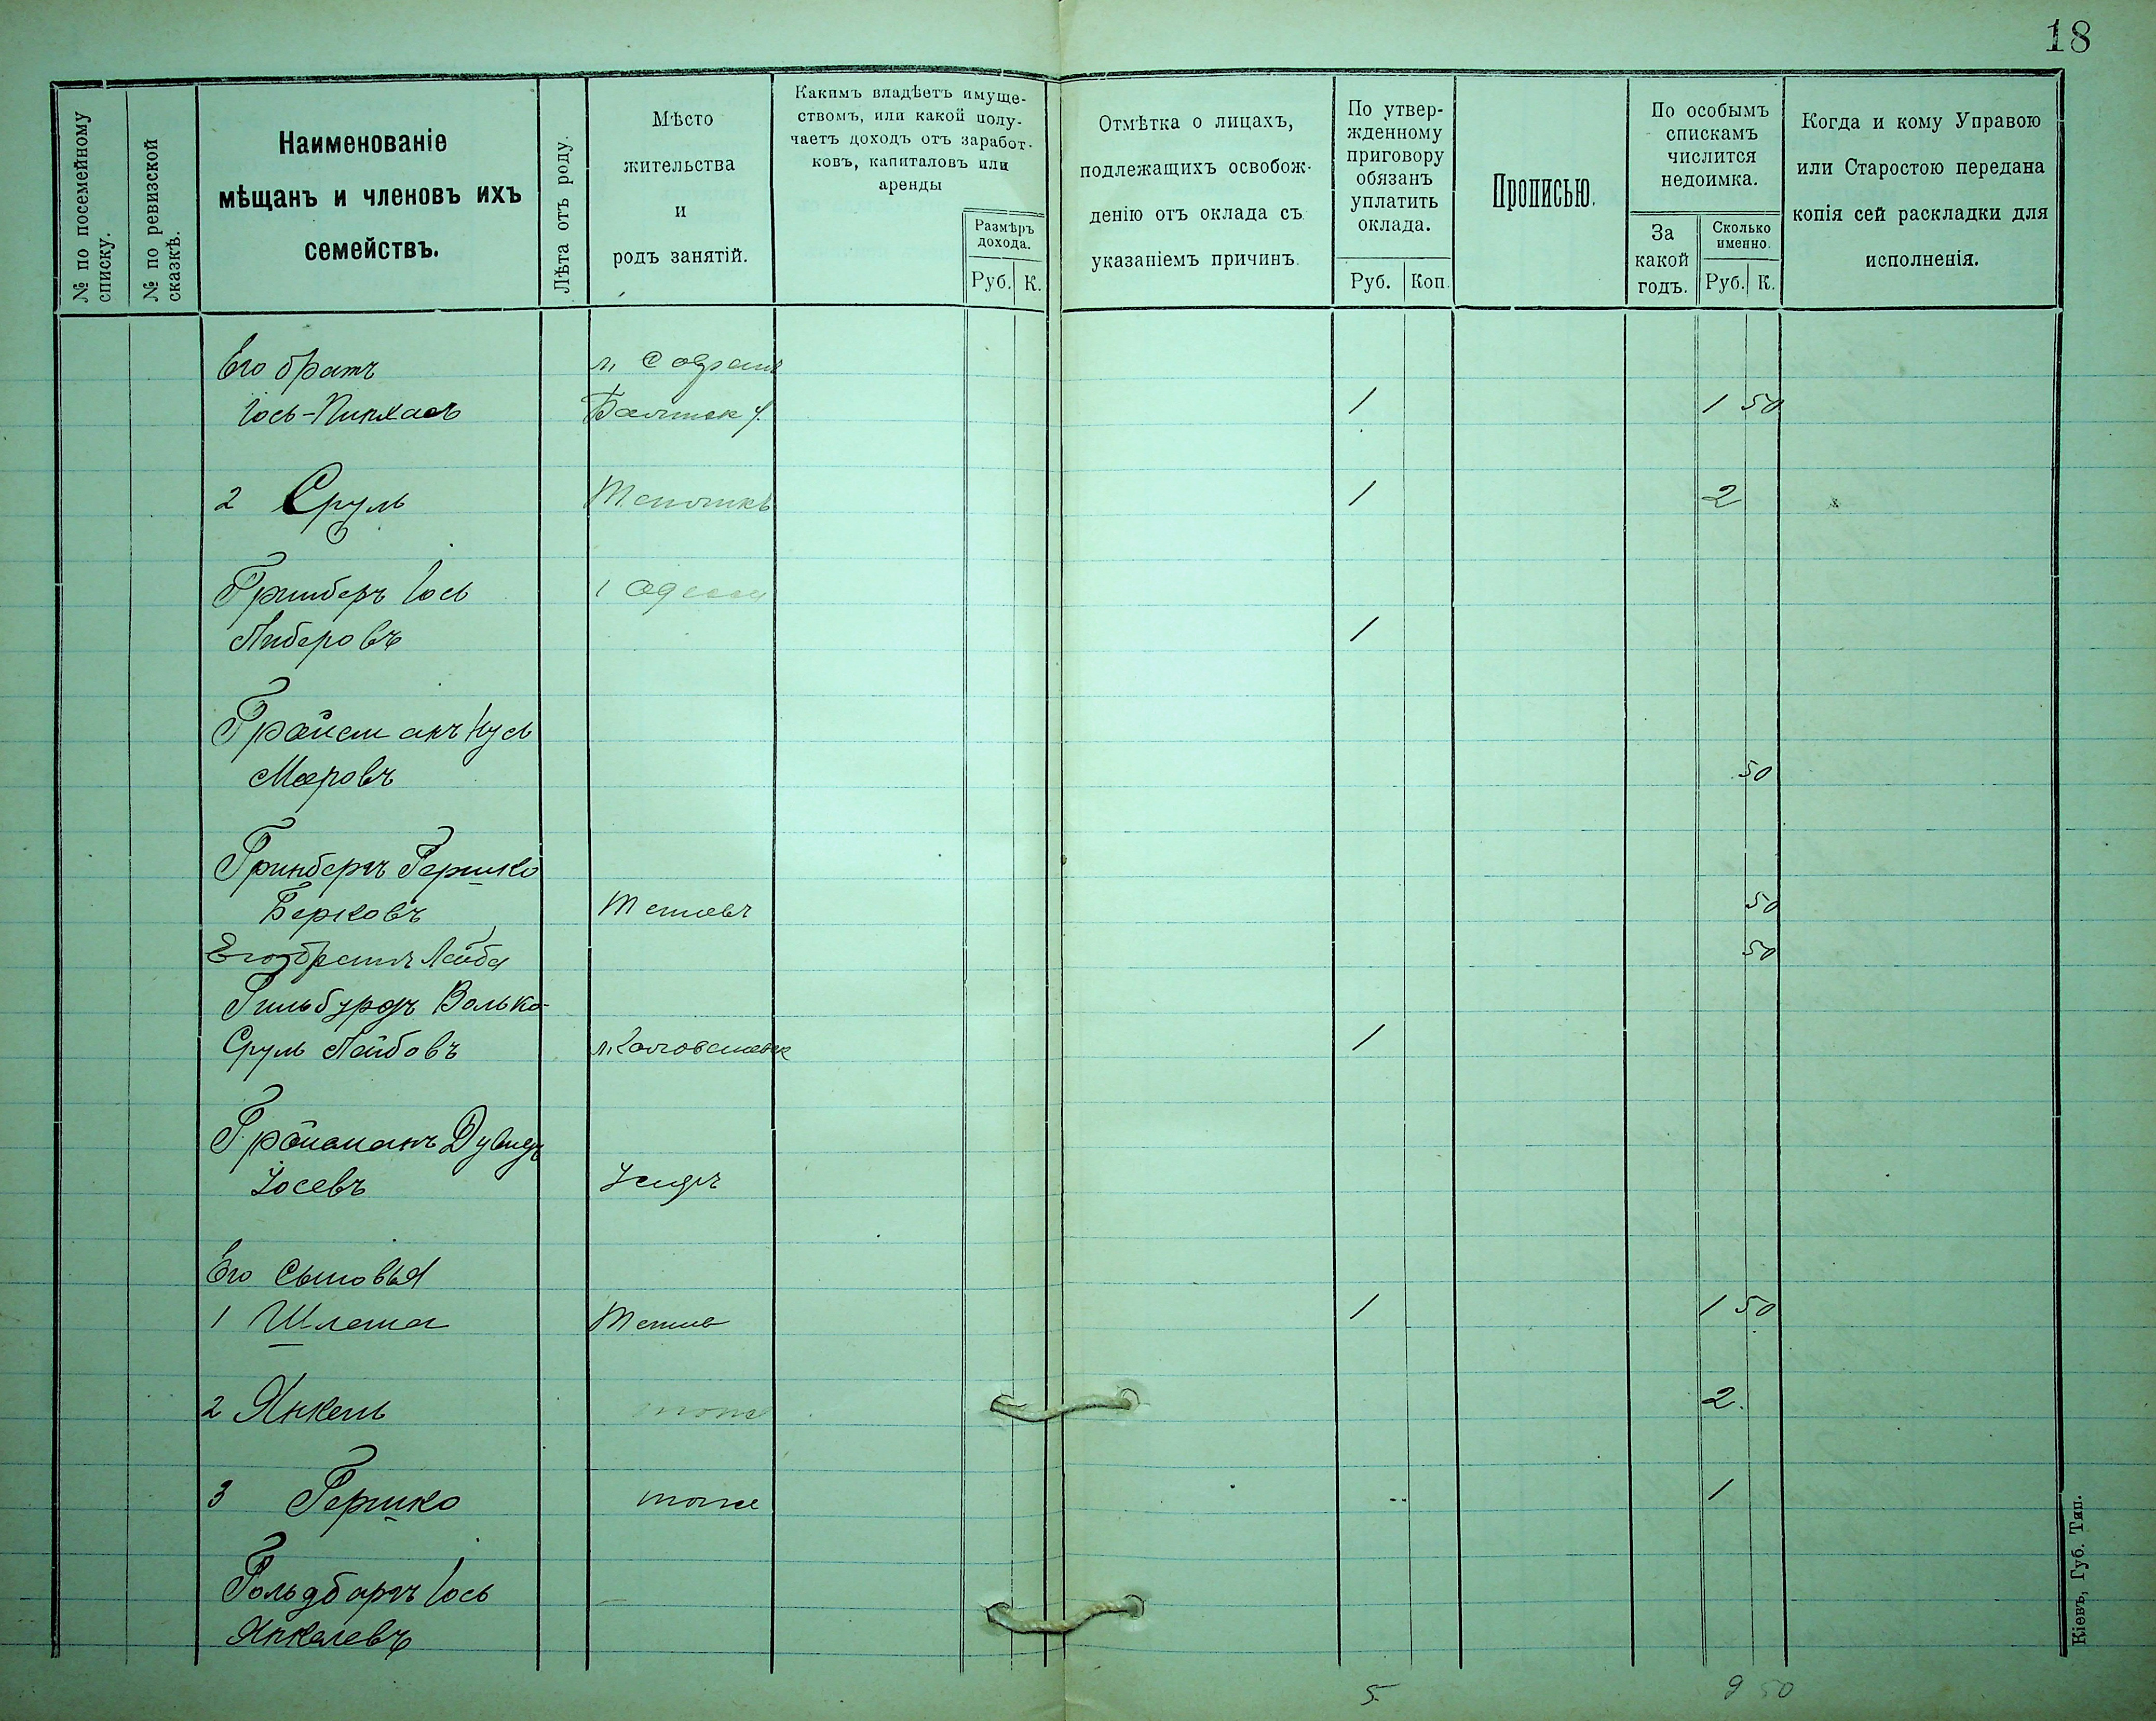 18
№ по посемейному
списку.
№ по ревизской
сказкѣ.
Наименованіе
мѣщанъ и членовъ ихъ
семействъ.
Лѣта отъ роду.
Мѣсто
жительства
и
родъ занятій.
Какимъ владѣетъ имуще-
ствомъ, или какой полу-
чаетъ доходъ отъ заработ-
ковъ, капиталовъ или
аренды
Размѣръ
дохода.
Руб. К.
Отмѣтка о лицахъ,
подлежащихъ освобож-
денію отъ оклада съ
указаніемъ причинъ.
По утвер-
жденному
приговору
обязанъ
уплатить
оклада.
Руб. Коп.
Прописью.
По особымъ
спискамъ
числится
недоимка.
За
какой
годъ.
Сколько
именно.
Руб. К.
Когда и кому Управою
или Старостою передана
копія сей раскладки для
исполненія.
Его братъ м.
Іось-Пинхасъ Балтск у. 1 1 50
2 Сруль 1 2
Гринберъ Іось Одесса
Либеровъ 1
Гройсманъ Нусь
Мееровъ 50
Гринбергъ Гершко
Берковъ Тетіевъ 50
Его братъ Лейба 50
Гильбурдъ Волько-
Сруль Лейбовъ м. 1
Гройсманъ Дувидъ
Іосевъ
Его сыновья
1 Шлема Тетіев 1 1 50
2 Янкель тоже 2
3 Гершко тоже 1
Гольдбергъ Іось
Янкелевъ
5 9 50
Кіевъ, Губ. Тип.